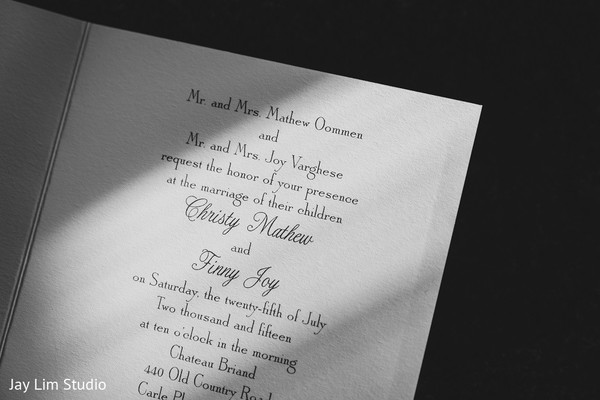 Mr. and Mrs. Mathew Oommen
and
Mr. and Mrs. Joy Varghese
request the honor of your presence
at the marriage of their children
Christy Mathew
and
Finny Joy
on Saturday, the twenty-fifth of July
Two thousand and fifteen
at ten o'clock in the morning
Chateau Briand
440 Old Country Road
Carle
Jay Lim Studio